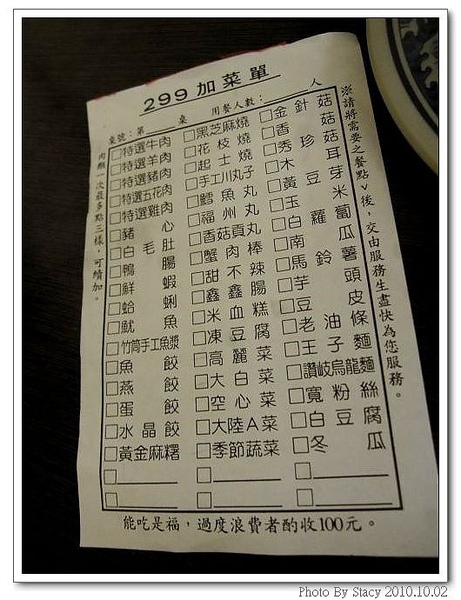 299加菜單
桌號：第 桌 用餐人數： 人
肉類一次最多點三樣，可續加。
□特選牛肉
□特選羊肉
□特選豬肉
□特選五花肉
□特選雞肉
□豬心
□白毛肚
□鴨腸
□鮮蝦
□蛤蜊
□魷魚
□竹筒手工魚漿
□魚餃
□燕餃
□蛋餃
□水晶餃
□黃金麻糬
□
□
□黑芝麻燒
□花枝燒
□起士燒
□手工川丸子
□鱈魚丸
□福州丸
□香菇貢丸
□蟹肉棒
□甜不辣
□鑫鑫腸
□米血糕
□凍豆腐
□高麗菜
□大白菜
□空心菜
□大陸A菜
□季節蔬菜
□
□
□金針菇
□香菇
□秀珍菇
□木耳
□黃豆芽
□玉米
□白蘿蔔
□南瓜
□馬鈴薯
□芋頭
□豆皮
□老油條
□王子麵
□讚岐烏龍麵
□寬粉絲
□白豆腐
□冬瓜
□
□
※請將需要之餐點v後，交由服務生盡快為您服務。
能吃是福，過度浪費者酌收100元。
Photo By Stacy 2010.10.02